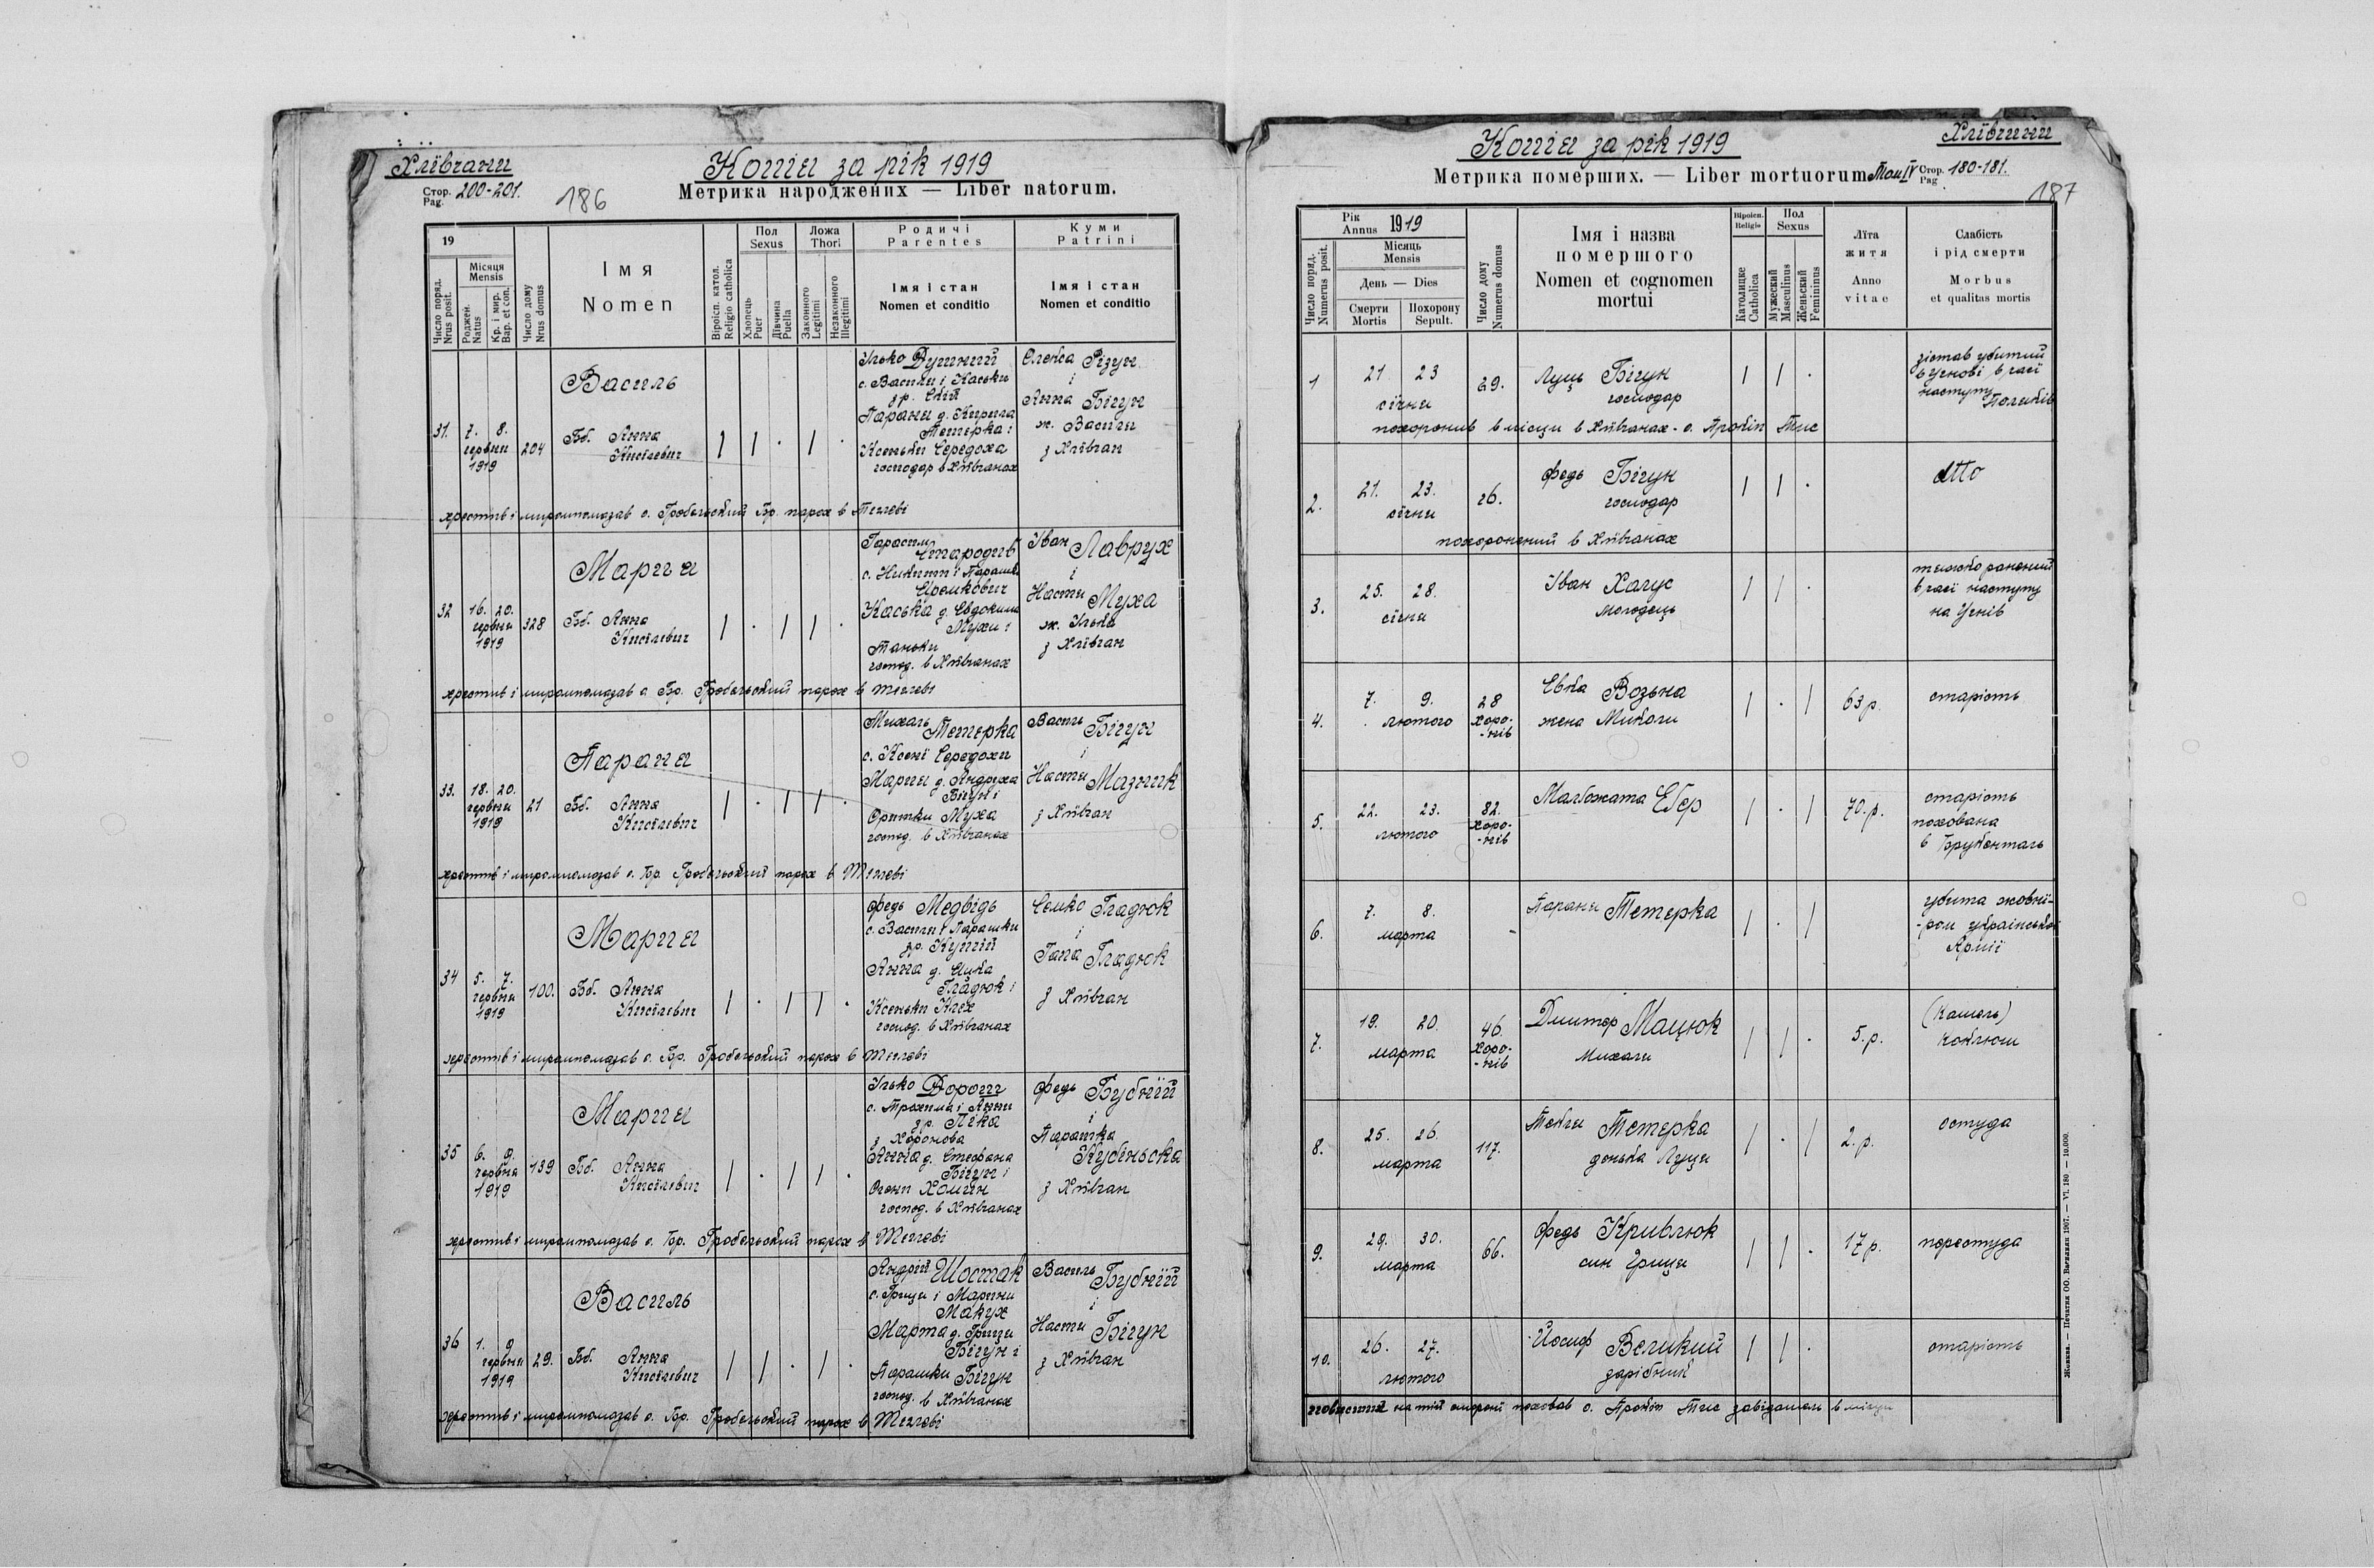 Хлівчани
Копія за рік 1919
Стор. Pag. 200-201.
186
Метрика народжених — Liber natorum.
19
Число поряд. Nrus posit.
Місяця Mensis
Роджен. Natus
Кр. і мир. Bap. et con.
Число дому Nrus domus
Імя
Nomen
Віроісп. катол. Religio catholica
Пол Sexus
Хлопець Puer
Дівчина Puella
Ложа Thori
Законного Legitimi
Незаконного Illegitimi
Родичі
Parentes
Імя і стан
Nomen et conditio
Куми
Patrini
Імя і стан
Nomen et conditio
31. 7. 8. червня 1919
204
Василь
Бб. Анна
Ілько Душний
с. Василя і Каськи
Парання д. Кирила
Тетерка і
Ксеньки Середоха
господар в Хлївчанах
Олекса Різун
і
Анна Бігун
ж. Василя
з Хлївчан
хрестив і миропомазав о. Гр. парох в
32 16. 20. червня 1919
328
Марія
Бб. Анна
Гарасим
Стародив
с. Никити і Парашки
Каська д. Евдокима
Мухи і
Таньки
господ. в Хлївчанах
Іван Лаврух
і
Настя Муха
ж. Ілька
з Хлївчан
хрестив і миропомазав о. парох в
33. 18. 20. червня 1919
21
Параня
Бб. Анна
Михаль Тетерка
с. Ксені Середохи
Марія д. Андруха
Бігун і
Муха
господ. в Хлївчанах
Василь Бігун
і
Настя Мазник
з Хлївчан
хрестив і миропомазав о. парох в
34 5. 7. червня 1919
100.
Марія
Бб. Анна
Федь Медвідь
с. Василя і Парашки
Анна д. Яцка
Гладюк і
Ксеньки
господ. в Хлївчанах
Семко Гладюк
і
Гапа Гладюк
з Хлївчан
хрестив і миропомазав о. парох в
35 6. 9. червня 1919
139
Марія
Бб. Анна
Ілько Дорош
с. Трохима і Анни
зр. Піка
з Хоронова
Анна д. Стефана
Бігун і
Олени Хомин
господ. в Хлївчанах
Федь Бубній
і
Парашка
Кубінська
з Хлївчан
хрестив і миропомазав о. парох в
36 1. 9 червня 1919
29.
Василь
Бб. Анна
Андрій Шостак
с. Гриця і Марини
Макух
Марта д. Гриця
Бігун і
Парашки Бігун
господ. в Хлївчанах
Василь Бубній
і
Настя Бігун
з Хлївчан
хрестив і миропомазав о. парох в
Копія за рік 1919
Хлївчани
Метрика померших. — Liber mortuorum Том IV Стор. Pag 180-181.
187
Рік Annus 1919
Число поряд. Numerus posit.
Місяць Mensis
День — Dies
Смерти Mortis
Похорону Sepult.
Число дому Numerus domus
Імя і назва
помершого
Nomen et cognomen
mortui
Віроісп. Religio
Католицке Catholica
Пол Sexus
Мужеский Masculinus
Женьский Femininus
Лїта
житя
Anno
vitae
Слабість
і рід смерти
Morbus
et qualitas mortis
1 21 23 сїчня
29.
Луць Бігун
господар
зістав убитий
в Угнові в часї
наступу Поляків
похоронив в місци в Хлївчанах - о. Прокіп Тис
2. 21. 23. сїчня
26.
Федь Бігун
господар
dtto
похоронений в Хлївчанах
3. 25. 28. сїчня
Іван
молодець
тяжко ранений
в часї наступу
на Угнів
4. 7. 9. лютого
28 Хоро-нів
Евка Возьна
жена Миколи
63 р.
старість
5. 22. 23. лютого
82. Хоро-нів
Малґожата Ебер
70. р.
старість
похована
в Брукенталь
6. 7. 8. марта
Параня Тетерка
убита жовні-
-ром української
Армії
7. 19. 20. марта
46. Хоро-нів
Дмитер Мацюк
Михаля
5. р.
(Кашель)
коклюш
8. 25. 26. марта
117.
Текля Тетерка
донька Луця
2. р.
остуда
9. 29. 30. марта
66.
Федь Кривлюк
син Гриця
17 р.
переступда
10. 26. 27. лютого
Йосиф Великий
зарібник
старість
на тій стороні поховав о. Прокіп Тис завідатель в місци
Жовква. — Печатня ОО. Василиян 1907. — VI. 180 — 10.000.